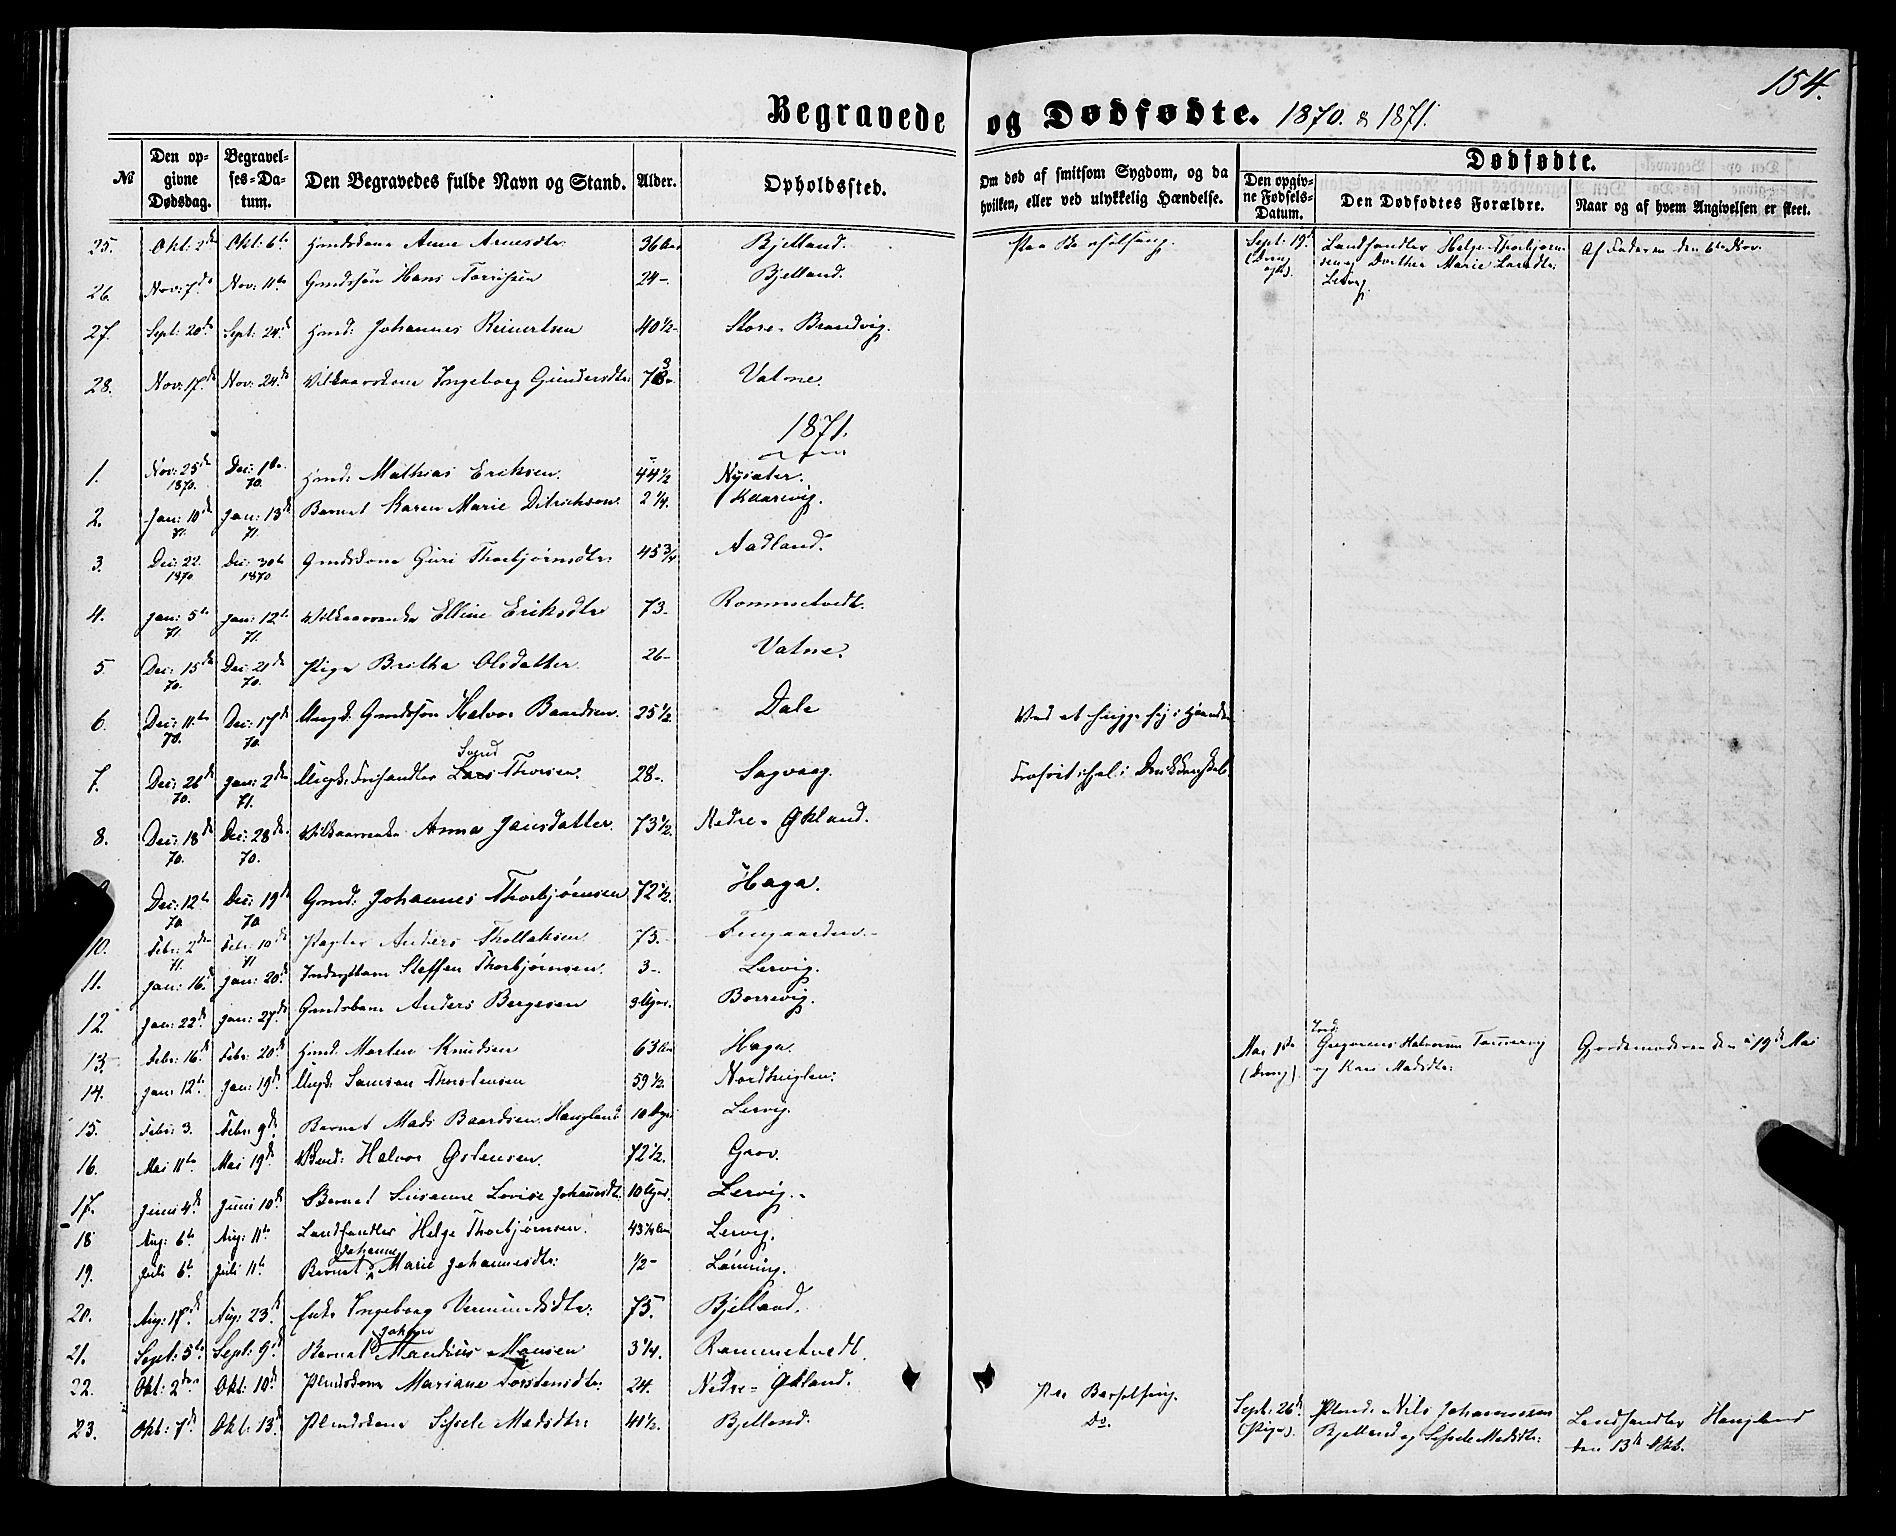 154.
Begravede og Dødfødte. 1870. & 1871.
№ Den opgivne Dødsdag. Begravelses-Datum. Den Begravedes fulde Navn og Stand. Alder. Opholdssted. Om død af smitsom Sygdom, og da hvilken, eller ved ulykkelig Hændelse. Dødfødte.
Den opgivne Fødsels-Datum. Den Dødfødtes Forældre. Naar og af hvem Angivelsen er skeet.
25. Okt: 2de Okt: 6te Anne Arnesdtr 36 Bjelland. Paa Barselseng. Sept: 19de (Dreng) Landhandler Helge Thorbjørnsen og Dorthea Marie Larsdtr: Lervig. Af Faderen den 6te Nov.
26. Nov: 7de Nov: 11te Gmdssøn Hans 24- Bjelland.
27. Sept: 20de Sept: 24de Johannes Reinertsen 40½- Store- Brandvig.
28. Nov: 17de Nov: 24de Vilkaarskone Ingeborg Gundersdtr: Vatne.
1871.
1. Nov: 25de 1870. Dec: 1te 70. Mathias Eriksen. 44½ Nysæter.
2. Jan: 10de 71. Jan: 13de 71. Barnet Karen Marie Ditriksen. 2¼. Kaarevig.
3. Dec: 22. 1870 Dec: 30te 1870 Gmdskone Guri Thorbjørnsdtr: 45¾ Aadland.
4. Jan: 5te 71. Jan: 12te 71. Elline Eriksdtr 73. Rommetvedt.
5. Dec: 15de 70. Dec: 21de 70. Pige Britha Olsdatter 26- Vatne.
6. Dec: 11te 70. Dec: 17de 70. Ungk. Gmdssøn Halvor Baardsen. 25½ Dale
7. Dec: 26de 70. Jan: 2den 71. Ungk. Svend Lars Thorsen. 28-. Sagvaag.
8. Dec: 18de 70. Dec: 28de 70. Anna Jansdatter. 73½. Nedre- Økland.
Dec: 12te 70. Dec: 19de 70 Gmd: Johannes Thorbjørnsen 72½. Haga.
10. Febr: 2den 71. Febr: 10de 71 Anders Thollaksen. 75.-
11. Jan: 16de Jan: 20de Steffen Thorbjørnsen. 3-. Lervig.
12. Jan: 22de Jan: 27de Gmdsbarn Anders Børgesen Borrevig.
13. Febr: 16de Febr: 20de Morten Knudsen 63 Haga. Mai 1ste (Dreng). Gregorius Halvorsen og Kari Madsdtr: Gjordemoderen den 19de Mai
14. Jan: 12te Jan: 19de Ungk. Samson Thorstensen 59½. Nordhuglen.
15. Febr: 3. Febr: 9de Barnet Mads Baardsen Haugland Lervig.
16. Mai 11te Mai 19de Halvor Østensen. 72½. Grov.
17. Juni 4de Juni 10de Barnet Susanne Lovise Johannesdt: Lervig.
18 Aug: 6te Aug: 11te Landhandler Helge Thorbjørnsen. Lervig.
19. Juli 6te Juli 11te Barnet Johanne Marie Johannesdtr: ½- Lønning.
20. Aug: 17de Aug: 23de Enke Ingeborg 75. Bjelland.
21. Sept: 5te Sept: 9de Barnet Monsen 3¼. Rommetvedt.
22. Okt: 2den Okt: 10de Mariane Torstensdtr: 24. Nedre- Økland. Paa Barselseng.
23. Okt: 7de Okt: 13de Madsdtr: 40½. Bjelland. Do. Sept: 26de (Pige). Nils Johannessen Bjelland og Madsdtr: Landhandler Haugland den 13de Okt.